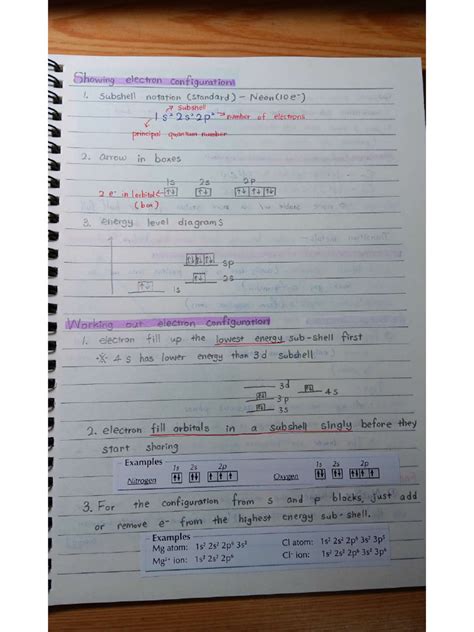 Showing electron configuration
1. Subshell notation (standard) - Neon (10e⁻)
subshell
1s² 2s² 2p⁶ → number of electrons
principal quantum number
2. arrow in boxes
1s 2s 2p
2 e⁻ in 1 orbital
(box)
3. energy level diagrams
2s
1s
Working out electron configuration
1. electron fill up the lowest energy sub-shell first
※ 4s has lower energy than 3d subshell
3d
4s
3p
3s
2. electron fill orbitals in a subshell singly before they
start sharing
Examples
1s 2s 2p
1s 2s 2p
Nitrogen
Oxygen
3. For the configuration from s and p blocks, just add
or remove e⁻ from the highest energy sub-shell.
Examples
Mg atom: 1s² 2s² 2p⁶ 3s²
Cl atom: 1s² 2s² 2p⁶ 3s² 3p⁵
Mg²⁺ ion: 1s² 2s² 2p⁶
Cl⁻ ion: 1s² 2s² 2p⁶ 3s² 3p⁶